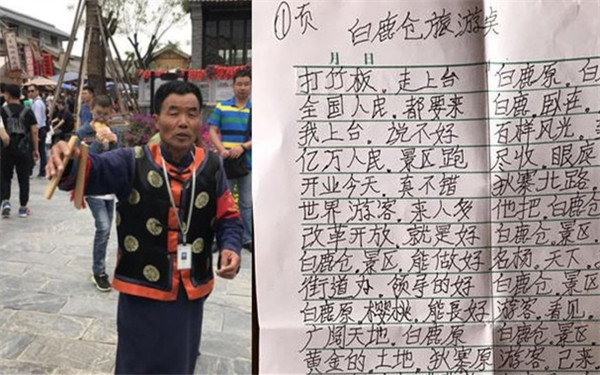 ①页 白鹿仓旅游
月 日
打竹板，走上台 白鹿原，白
全国人民，都要来 白鹿，卧在，
我上台，说不好 百样风光，
亿万人民，景区跑 尽收，眼底
开业今天，真不错 狄寨北路，
世界游客，来人多 他把，白鹿仓
改革开放，就是好 白鹿仓，景区
白鹿仓，景区，能做好 名杨，天下，
街道办，领导的好 白鹿仓，景区
白鹿原，樱桃，能長好 游客，看见，
广阔天地，白鹿原 白鹿仓，景区，
黄金的，土地，狄寨原 游客，己来，